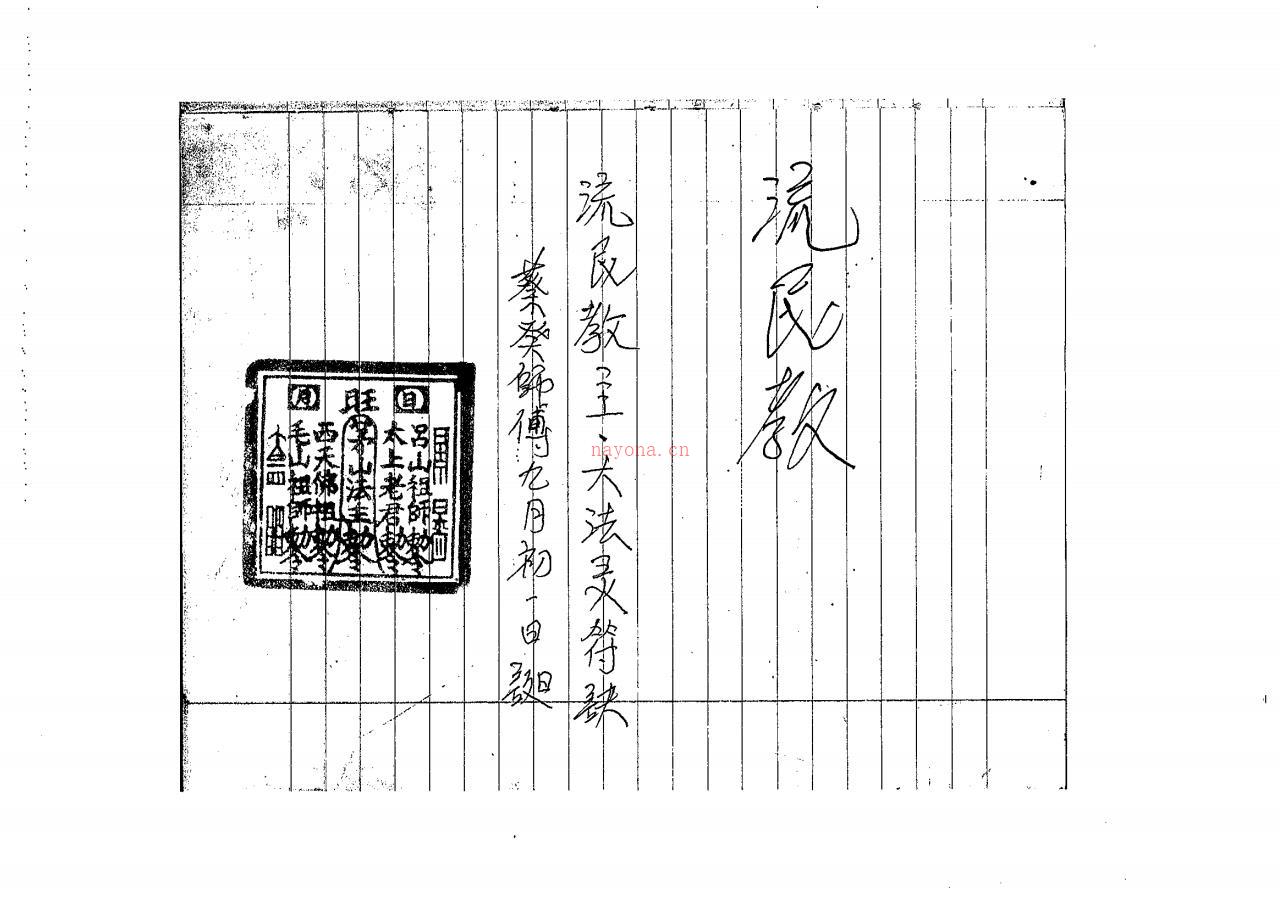 流民教
流民教主、大法灵符訣
蔡癸師傅九月初一日
日
旺
月
呂山祖師勅令
太上老君勅令
茅山法主勅令
西天佛祖勅令
毛山祖師勅令
nayona.cn